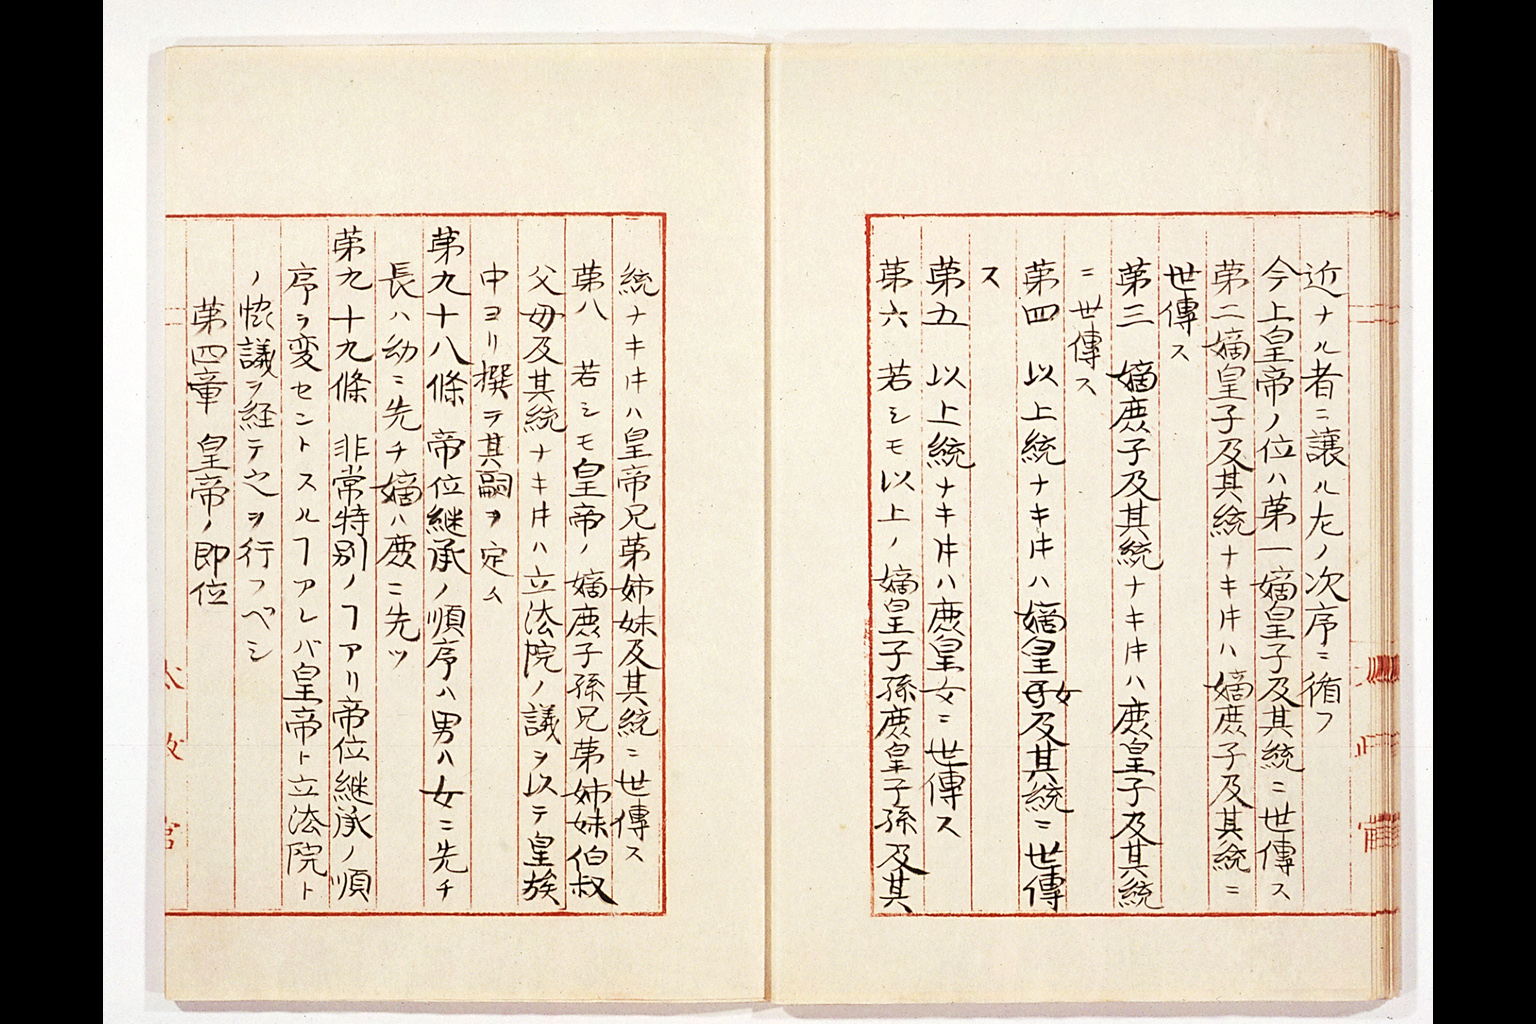 近ナル者ニ譲ル左ノ次序ニ循フ
今上皇帝ノ位ハ第一嫡皇子及其統ニ世傳ス
第二嫡皇子及其統ナキ𪜈ハ嫡庶子及其統ニ
世傳ス
第三 嫡庶子及其統ナキ𪜈ハ庶皇子及其統
ニ世傳ス
第四 以上統ナキ𪜈ハ嫡皇女及其統ニ世傳
ス
第五 以上統ナキ𪜈ハ庶皇女ニ世傳ス
第六 若シモ以上ノ嫡皇子孫庶皇子孫及其
統ナキ𪜈ハ皇帝兄弟姉妹及其統ニ世傳ス
第八 若シモ皇帝ノ嫡庶子孫兄弟姉妹伯叔
父母及其統ナキ𪜈ハ立法院ノ議ヲ以テ皇族
中ヨリ撰テ其嗣ヲ定ム
第九十八條 帝位継承ノ順序ハ男ハ女ニ先チ
長ハ幼ニ先チ嫡ハ庶ニ先ツ
第九十九條 非常特別ノヿアリ帝位継承ノ順
序ヲ変セントスルヿアレバ皇帝ト立法院ト
ノ議ヲ経テ之ヲ行フベシ
第四章 皇帝ノ即位